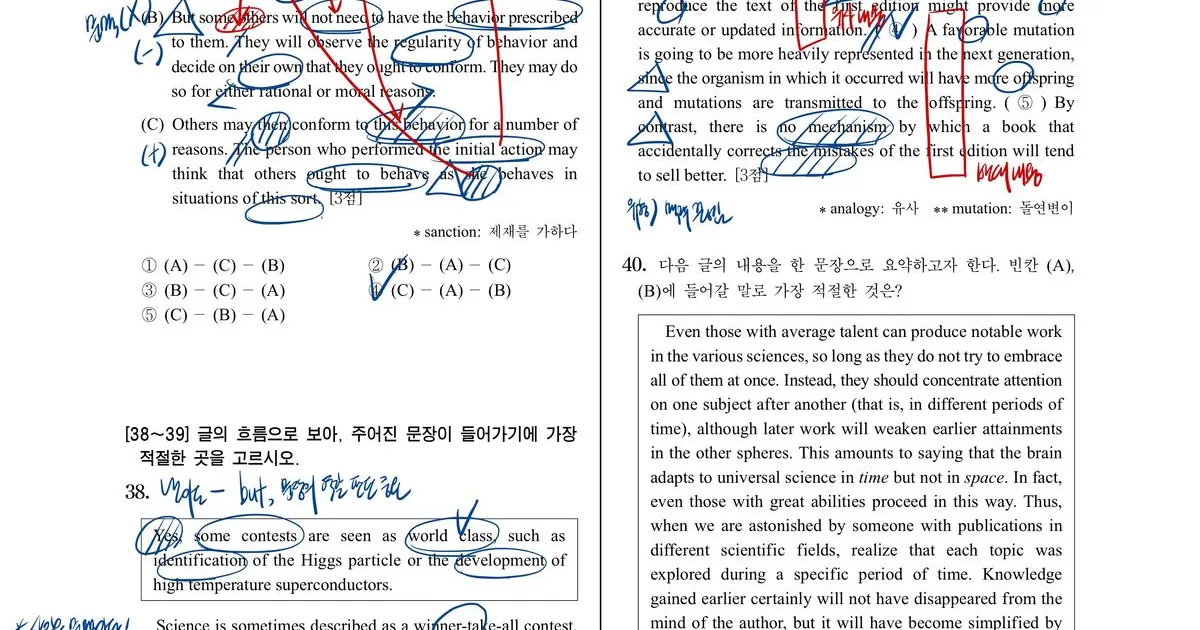 (B) But some others will not need to have the behavior prescribed
to them. They will observe the regularity of behavior and
decide on their own that they ought to conform. They may do
so for either rational or moral reasons.
(C) Others may then conform to this behavior for a number of
reasons. The person who performed the initial action may
think that others ought to behave as she behaves in
situations of this sort. [3점]
* sanction: 제재를 가하다
① (A) － (C) － (B)
② (B) － (A) － (C)
③ (B) － (C) － (A)
④ (C) － (A) － (B)
⑤ (C) － (B) － (A)
[38～39] 글의 흐름으로 보아, 주어진 문장이 들어가기에 가장
적절한 곳을 고르시오.
38.
but,
Yes, some contests are seen as world class, such as
identification of the Higgs particle or the development of
high temperature superconductors.
Science is sometimes described as a winner-take-all contest,
reproduce the text of the first edition might provide more
accurate or updated information. ( ④ ) A favorable mutation
is going to be more heavily represented in the next generation,
since the organism in which it occurred will have more offspring
and mutations are transmitted to the offspring. ( ⑤ ) By
contrast, there is no mechanism by which a book that
accidentally corrects the mistakes of the first edition will tend
to sell better. [3점]
* analogy: 유사 ** mutation: 돌연변이
40. 다음 글의 내용을 한 문장으로 요약하고자 한다. 빈칸 (A),
(B)에 들어갈 말로 가장 적절한 것은?
Even those with average talent can produce notable work
in the various sciences, so long as they do not try to embrace
all of them at once. Instead, they should concentrate attention
on one subject after another (that is, in different periods of
time), although later work will weaken earlier attainments
in the other spheres. This amounts to saying that the brain
adapts to universal science in time but not in space. In fact,
even those with great abilities proceed in this way. Thus,
when we are astonished by someone with publications in
different scientific fields, realize that each topic was
explored during a specific period of time. Knowledge
gained earlier certainly will not have disappeared from the
mind of the author, but it will have become simplified by